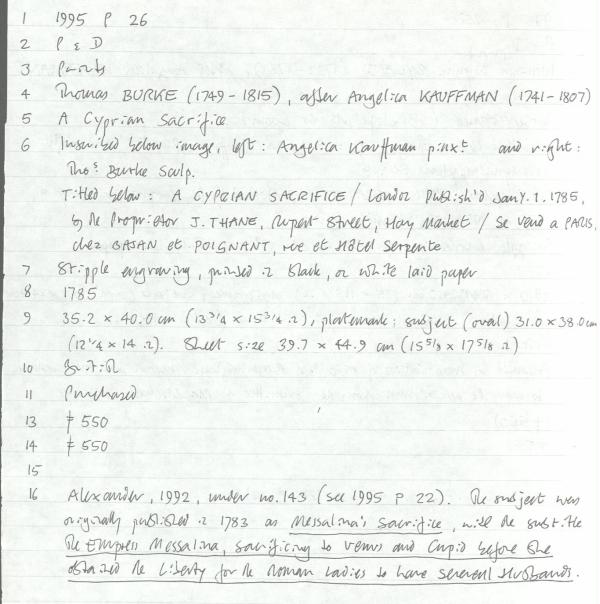 1 1995 P 26
2 P & D
3 Prints
4 Thomas BURKE (1749-1815), after Angelica KAUFFMAN (1741-1807)
5 A Cyprian Sacrifice
6 Inscribed below image, left: Angelica Kauffman pinxt and right:
Thos Burke Sculp.
Titled below: A CYPRIAN SACRIFICE / London Publish'd Jany. 1. 1785,
by the Proprietor J. THANE, Rupert Street, Hay Market / Se vend a PARIS,
chez BASAN et POIGNANT, rue et Hôtel Serpente
7 Stipple engraving, printed in black, on white laid paper
8 1785
9 35.2 x 40.0 cm (13 3/4 x 15 3/4 in), platemark; subject (oval) 31.0 x 38.0 cm
(12 1/4 x 14 in). Sheet size 39.7 x 44.9 cm (15 5/8 x 17 5/8 in)
10 British
11 Purchased
13 ≠ 550
14 ≠ 550
15
16 Alexander, 1992, under no. 143 (see 1995 P 22). The subject was
originally published in 1783 as Messalina's Sacrifice, with the subtitle
The Empress Messalina, sacrificing to Venus and Cupid before She
obtained the Liberty for the Roman Ladies to have several Husbands.